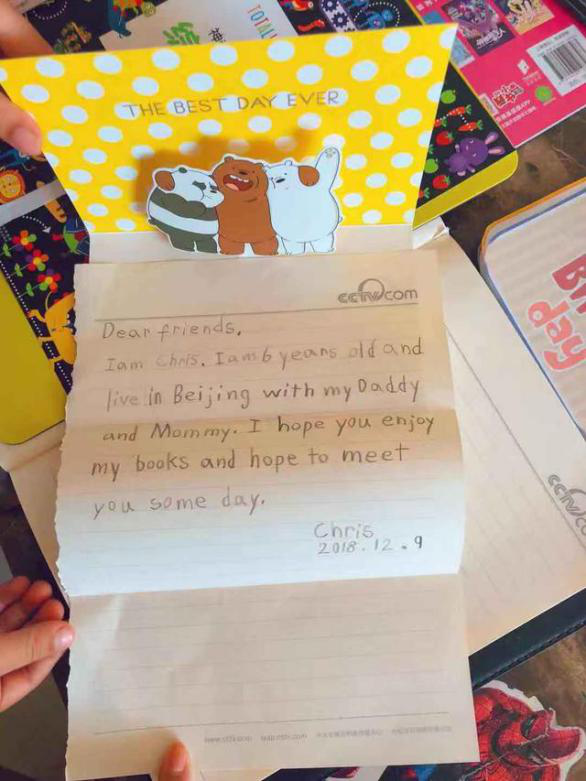 TOTAL
THE BEST DAY EVER
cctv.com
Dear friends,
I am Chris. I am 6 years old and
live in Beijing with my Daddy
and Mommy. I hope you enjoy
my books and hope to meet
you some day.
Chris
2018.12.9
day